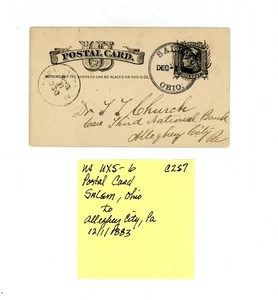 POSTAL CARD.
NOTHING BUT THE ADDRESS CAN BE PLACED ON THIS SIDE.
SALEM
DEC
OHIO.
Dr T T Church
Care Third National Bank
Allegheny City
Pa
UX5-6 C257
Postal Card
Salem, Ohio
to
Allegheny City, Pa
12/11/1883